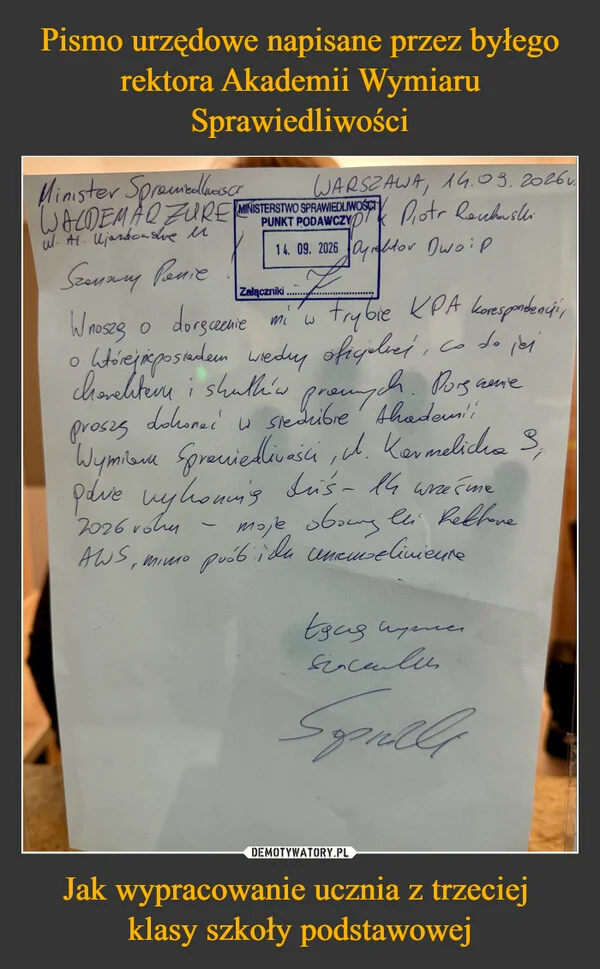 Pismo urzędowe napisane przez byłego
rektora Akademii Wymiaru
Sprawiedliwości
WARSZAWA, 14.09.2026r.
Minister Sprawiedliwości
WALDEMAR ŻUREK
ul. Al. Ujazdowskie 11
MINISTERSTWO SPRAWIEDLIWOŚCI
PUNKT PODAWCZY
14. 09. 2026
Załączniki
Piotr
Dyrektor DWOiP
Szanowny Panie
Wnoszę o doręczenie mi w trybie KPA korespondencji,
o której nie posiadam wiedzy oficjalnej, co do jej
charakteru i skutków prawnych. Doręczenie
proszę dokonać w siedzibie Akademii
Wymiaru Sprawiedliwości, ul. Karmelicka 9,
gdzie wykonuję dziś - 14 września
2026 roku - moje obowiązki Rektora
AWS, mimo prób ich uniemożliwienia
Łączę wyrazy
szacunku
DEMOTYWATORY.PL
Jak wypracowanie ucznia z trzeciej
klasy szkoły podstawowej